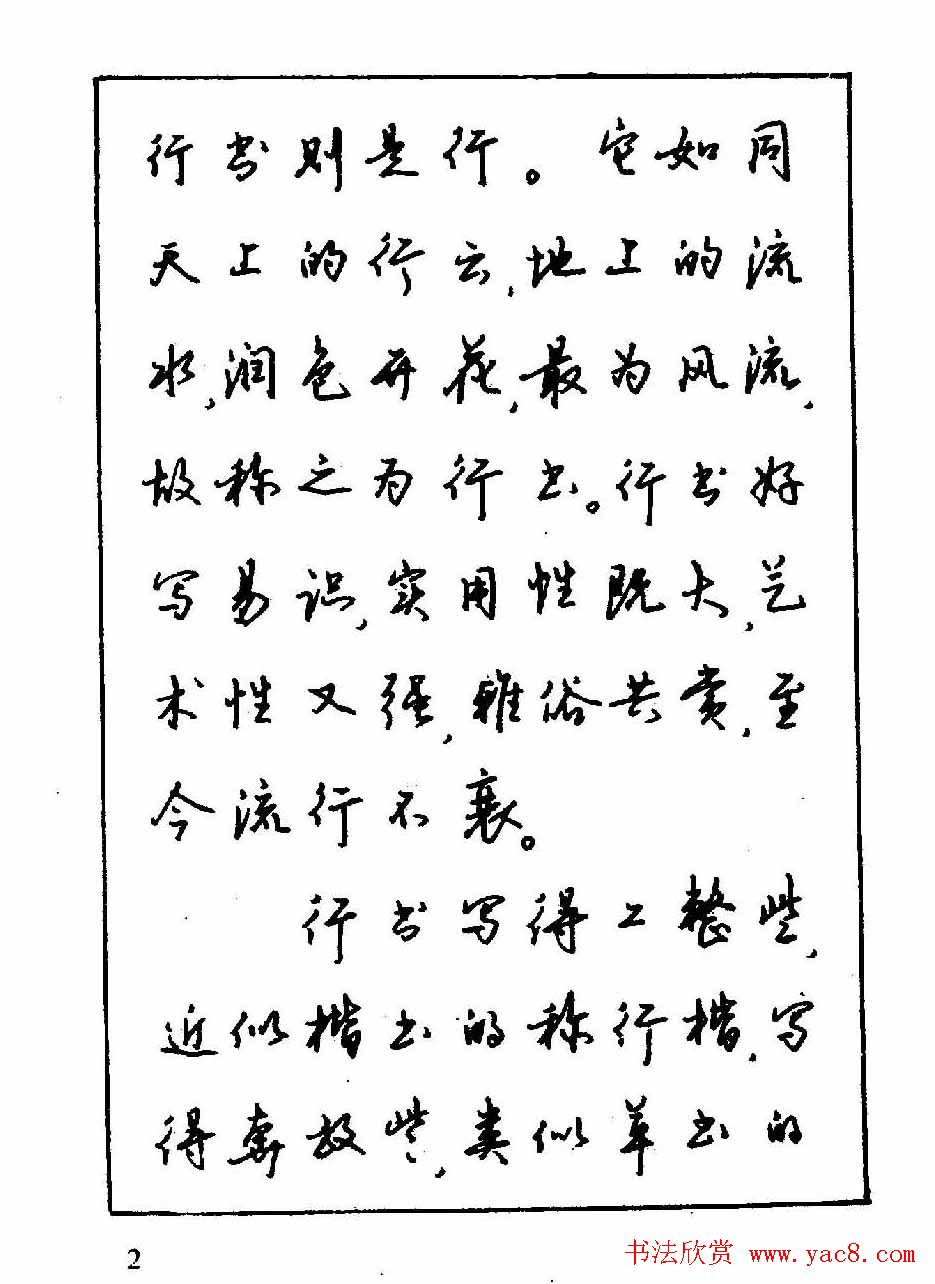 行书则是行。它如同
天上的行云,地上的流
水,润色开花,最为风流,
故称之为行书。行书好
写易识,实用性既大,艺
术性又强,雅俗共赏,至
今流行不衰。
行书写得工整些,
近似楷书的称行楷,写
得奔放些,类似草书的
2
书法欣赏 www.yac8.com